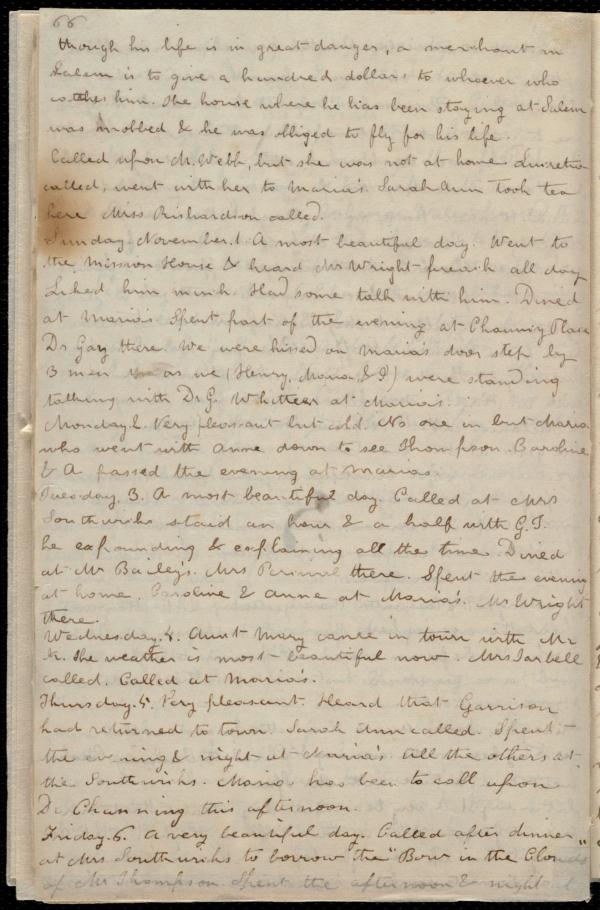 66
though his life is in great danger, a merchant in
Salem is to give a hundred dollars to whoever who
catches him. The house where he has been staying at Salem
was mobbed & he was obliged to fly for his life.
Called upon M. Webb, but she was not at home. Lucretia
called, went with her to Maria's. Sarah Ann took tea
here Miss Richardson called.
Sunday November. 1. A most beautiful day. Went to
the Mission House & heard Mr Wright preach all day
Liked him much. Had some talk with him. Dined
at Maria's Spent part of the evening at Chauncy Place
Dr Gay there. We were hissed on Maria's door step by
3 men as we (Henry, Maria & I) were standing
talking with Dr G. Whittier at Maria's.
Monday 2. Very pleasant but cold. No one in but Maria
who went with Anne down to see Thompson. Caroline
& A passed the evening at Marias.
Tuesday. 3. A most beautiful day. Called at Mrs
Southwicks staid an hour & a half with G.T.
he expounding & explaining all the time. Dined
at Mr Bailey's. Mrs Percival there. Spent the evening
at home. Caroline & Anne at Maria's. Mr Wright
there.
Wednesday. 4. Aunt Mary came in town with Mr
K. The weather is most beautiful now. Mrs Tarbell
called. Called at Maria's.
Thursday. 5. Very pleasant. Heard that Garrison
had returned to town. Sarah Ann called. Spent
the evening & night at Maria's. All the others at
the Southwicks. Maria has been to call upon
Dr Channing this afternoon.
Friday. 6. A very beautiful day. Called after dinner
at Mrs Southwicks to borrow the "Bow in the Clouds"
of Mr Thompson. Spent the afternoon & night